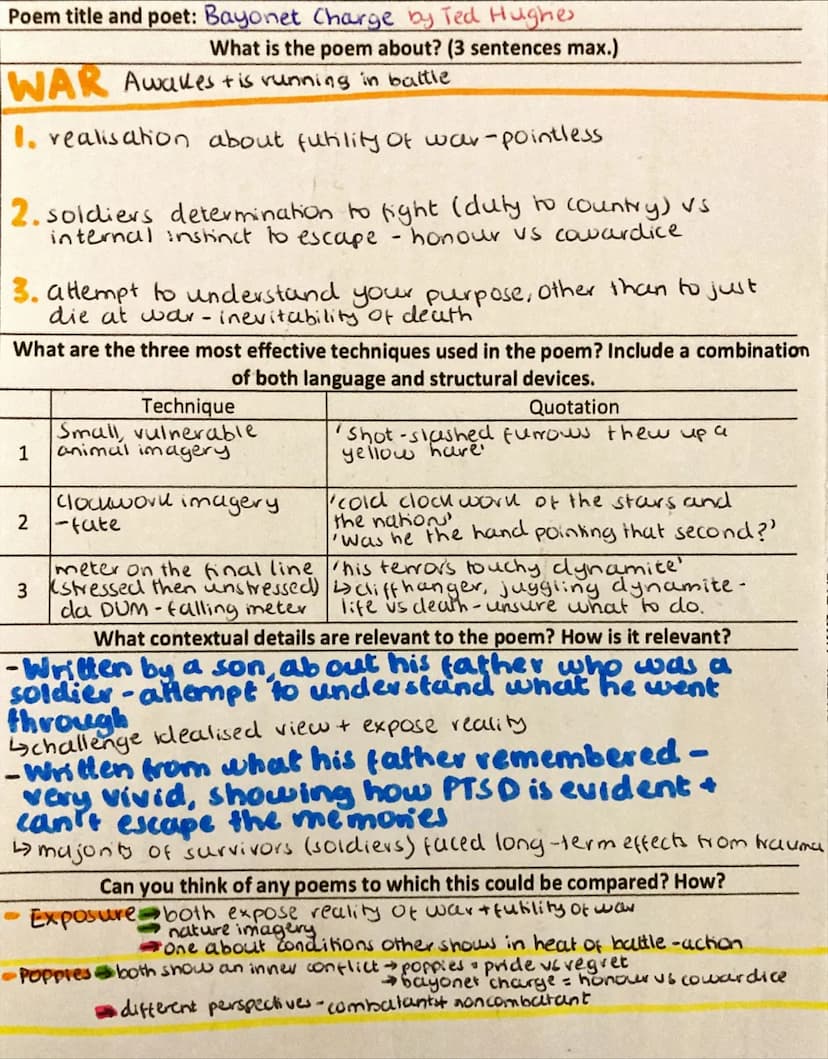 Poem title and poet: Bayonet Charge by Ted Hughes
What is the poem about? (3 sentences max.)
WAR Awakes + is running in battle
1. realisation about futility of war - pointless
2. soldiers determination to fight (duty to country) vs
internal instinct to escape - honour vs cowardice
3. attempt to understand your purpose, other than to just
die at war - inevitability of death
What are the three most effective techniques used in the poem? Include a combination
of both language and structural devices.
Technique Quotation
1 Small, vulnerable animal imagery 'Shot-slashed furrows thew up a yellow hare'
2 clockwork imagery - fate 'cold clockwork of the stars and the nation' 'was he the hand pointing that second?'
3 meter on the final line (stressed then unstressed) da DUM - falling meter 'his terror's touchy dynamite' ↳ cliffhanger, juggling dynamite - life vs death - unsure what to do.
What contextual details are relevant to the poem? How is it relevant?
- Written by a son, about his father who was a
soldier - attempt to understand what he went
through
↳ challenge idealised view + expose reality
- Written from what his father remembered -
very vivid, showing how PTSD is evident +
can't escape the memories
↳ majority of survivors (soldiers) faced long-term effects from trauma
Can you think of any poems to which this could be compared? How?
- Exposure → both expose reality of war + futility of war
→ nature imagery
→ one about conditions other shows in heat of battle - action
- Poppies → both show an inner conflict → poppies = pride vs regret
→ bayonet charge = honour vs cowardice
→ different perspectives - combatant + noncombatant